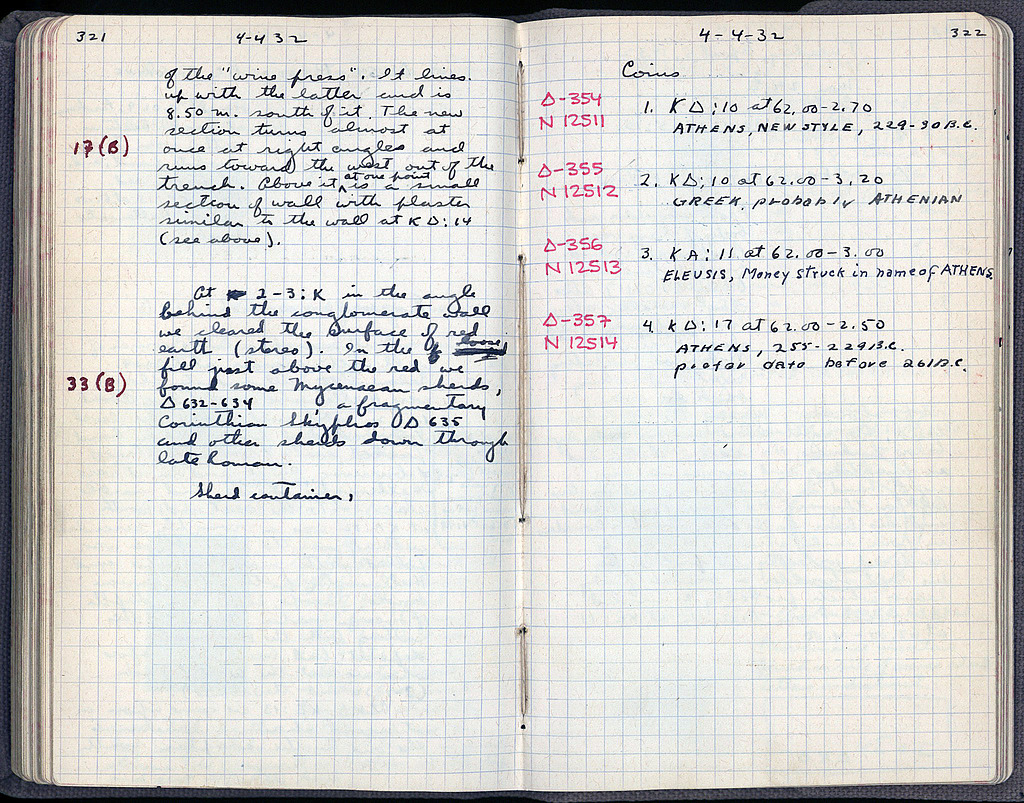 321
4-4 32
of the "wine press". It lines
up with the latter and is
8.50 m. south of it. The new
section turns almost at
17(B)
once at right angles and
runs toward the west out of the
trench. Above it at one point is a small
section of wall with plaster
similar to the wall at KΔ:14
(see above).
At 2-3:K in the angle
behind the conglomerate wall
we cleared the surface of red
earth (stereo). In the loose
fill just above the red we
33(B)
found some Mycenaean sherds,
Δ 632-634 a fragmentary
Corinthian Skyphos Δ 635
and other sherds down through
late Roman.
Sherd container,
4-4-32
322
Coins
Δ-354
N 12511
1. KΔ:10 at 62.00-2.70
ATHENS, NEW STYLE, 229-30 B.C.
Δ-355
N 12512
2. KΔ:10 at 62.00-3.20
GREEK, probably ATHENIAN
Δ-356
N 12513
3. KA:11 at 62.00-3.00
ELEUSIS, Money struck in name of ATHENS.
Δ-357
N 12514
4. KΔ:17 at 62.00-2.50
ATHENS, 255-229 B.C.
prefer date before 261 B.C.